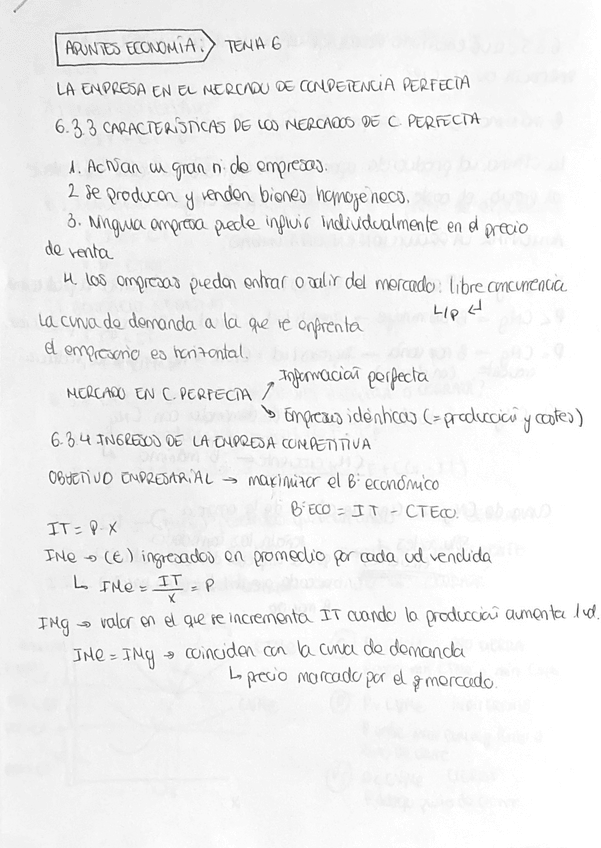 APUNTES ECONOMÍA. TEMA 6
LA EMPRESA EN EL MERCADO DE COMPETENCIA PERFECTA
6.3.3 CARACTERÍSTICAS DE LOS MERCADOS DE C. PERFECTA
1. Actúan un gran nº de empresas.
2 Se producen y venden bienes homogéneos.
3. Ninguna empresa puede influir individualmente en el precio
de venta.
4. Los empresas pueden entrar o salir del mercado: libre concurrencia
L/p ↵
La curva de demanda a la que se enfrenta
el empresario es horizontal.
MERCADO EN C. PERFECTA ↗ Información perfecta
↘ Empresas idénticas (= producción y costes)
6.3.4 INGRESOS DE LA EMPRESA COMPETITIVA
OBJETIVO EMPRESARIAL → maximizar el Bº económico
Bº ECO = IT - CTEco.
IT = P · X
IMe → (€) ingresados en promedio por cada ud vendida
↳ IMe = IT / X = P
IMg → valor en el que se incrementa IT cuando la producción aumenta 1 ud.
IMe = IMg → coinciden con la curva de demanda
↳ precio marcado por el mercado.